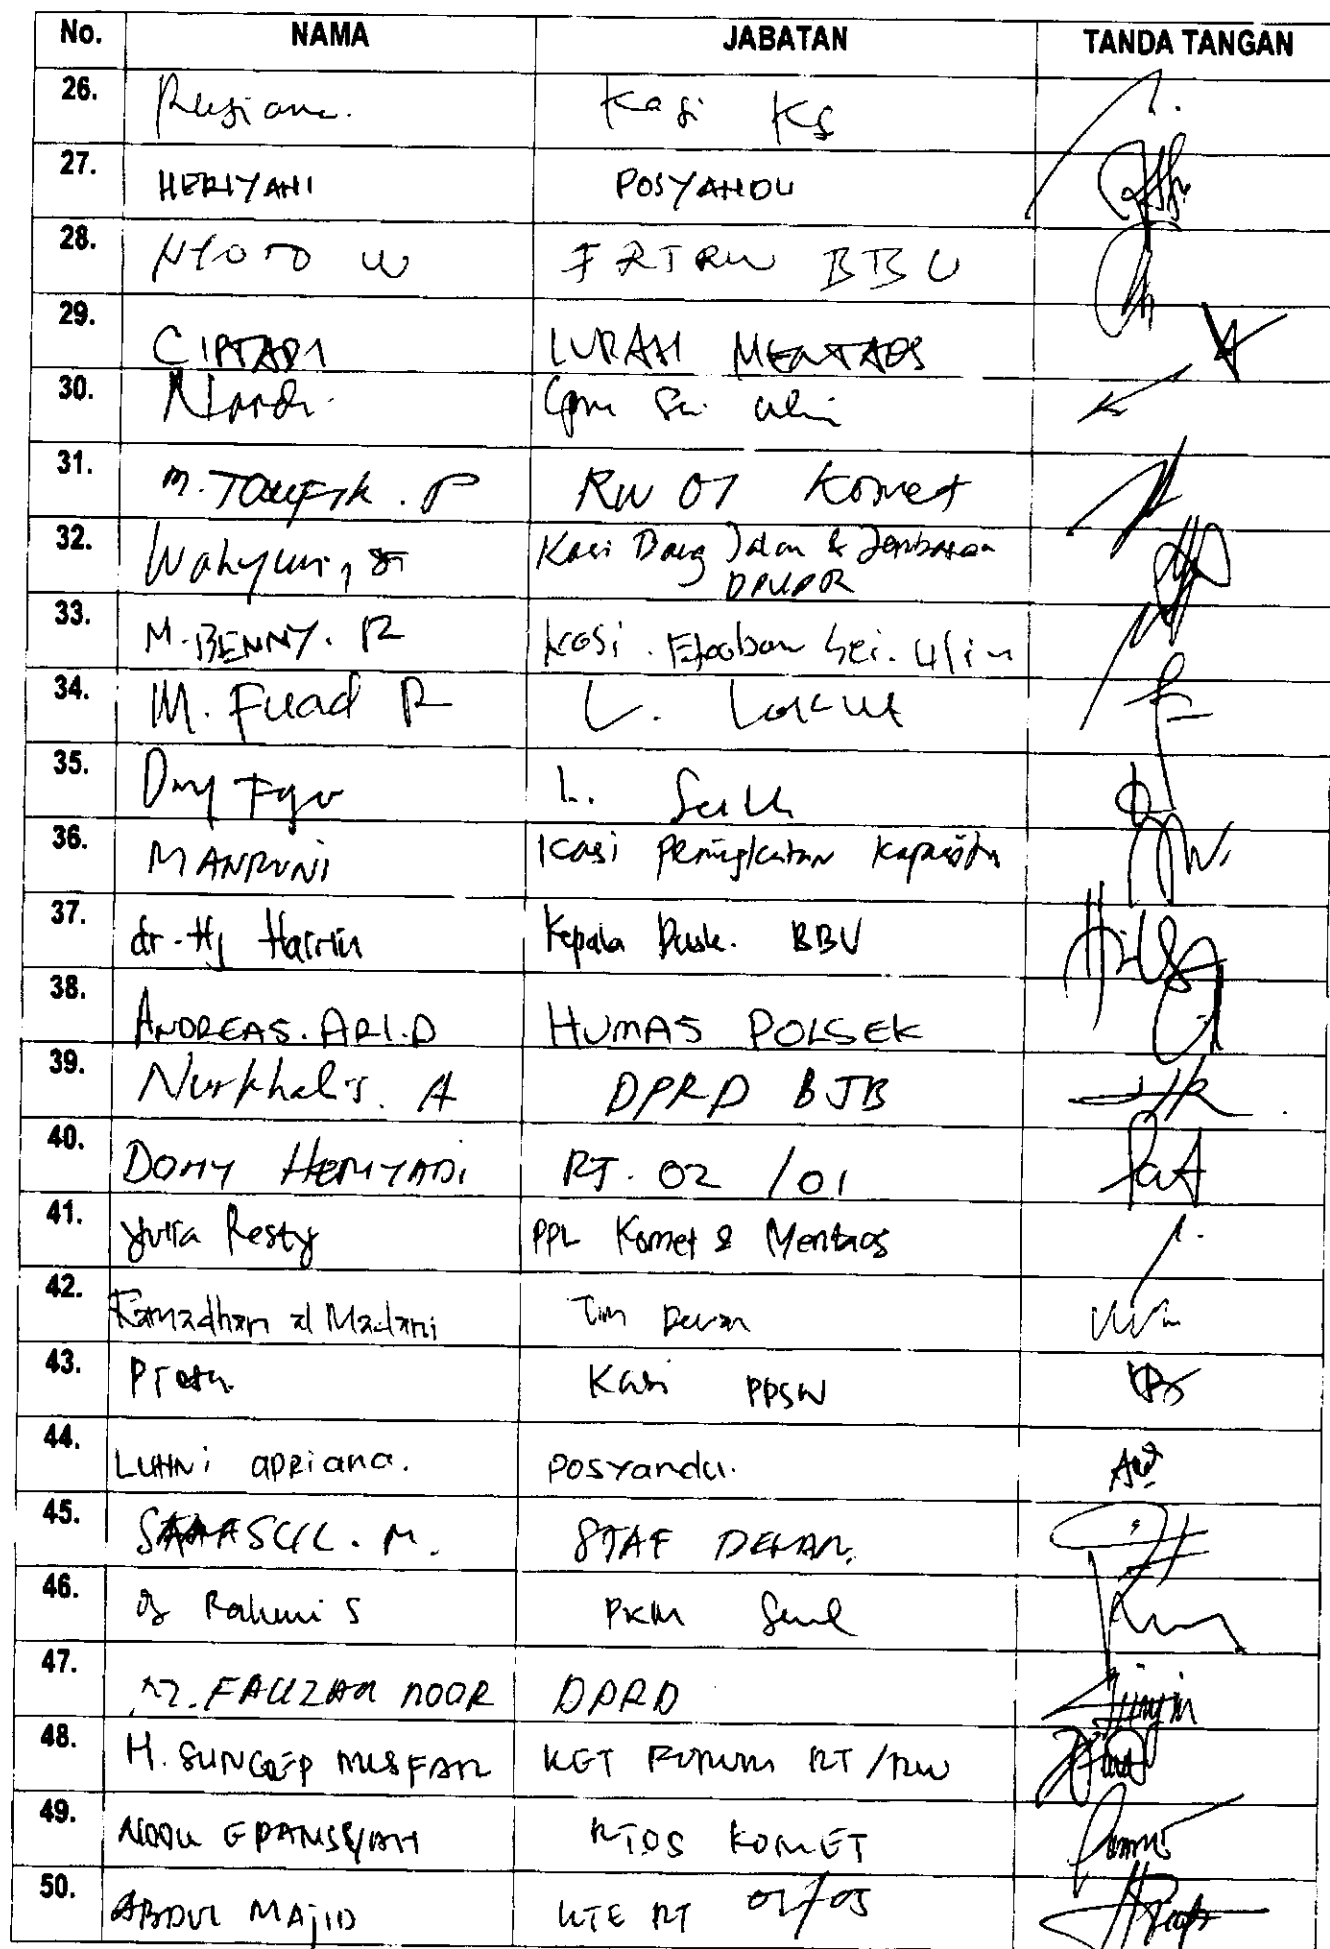 No. NAMA JABATAN TANDA TANGAN
26. Rusiana. Kasi KS
27. HERIYANI POSYANDU
28. NYOTO W FRTRW BTB U
29. CIPTADI LURAH MENTAOS
30. Nardi. Sei. Ulin
31. M. TAUFIK . P RW 07 Komet
32. Wahyuni, ST Kasi Jalan & Jembatan
DPUPR
33. M. BENNY. R Kasi . Ekobang Sei. Ulin
34. M. Fuad R L. Loktut
35. L.
36. MANRUNI Kasi Peningkatan Kapasitas
37. dr. Hj Hairrin Kepala Pusk. BBU
38. ANDREAS. ARI.D HUMAS POLSEK
39. Nurkhalis. A DPRD BJB
40. DONY HERIYADI RT. 02 /01
41. Yulia Resty PPL Komet & Mentaos
42. Ramadhan al Madani Tim Dewan
43. Kasi PPSW
44. LUHNi apRiana. Posyandu.
45. M. STAF DEWAN.
46. Rahmi S PKM
47. M. FAUZAN NOOR DPRD
48. H. SUNGGEP MUSFAR KET FORUM RT/RW
49. NOOR EPANSYAH RT05 KOMET
50. ABDUL MAJID KTE RT 02/05